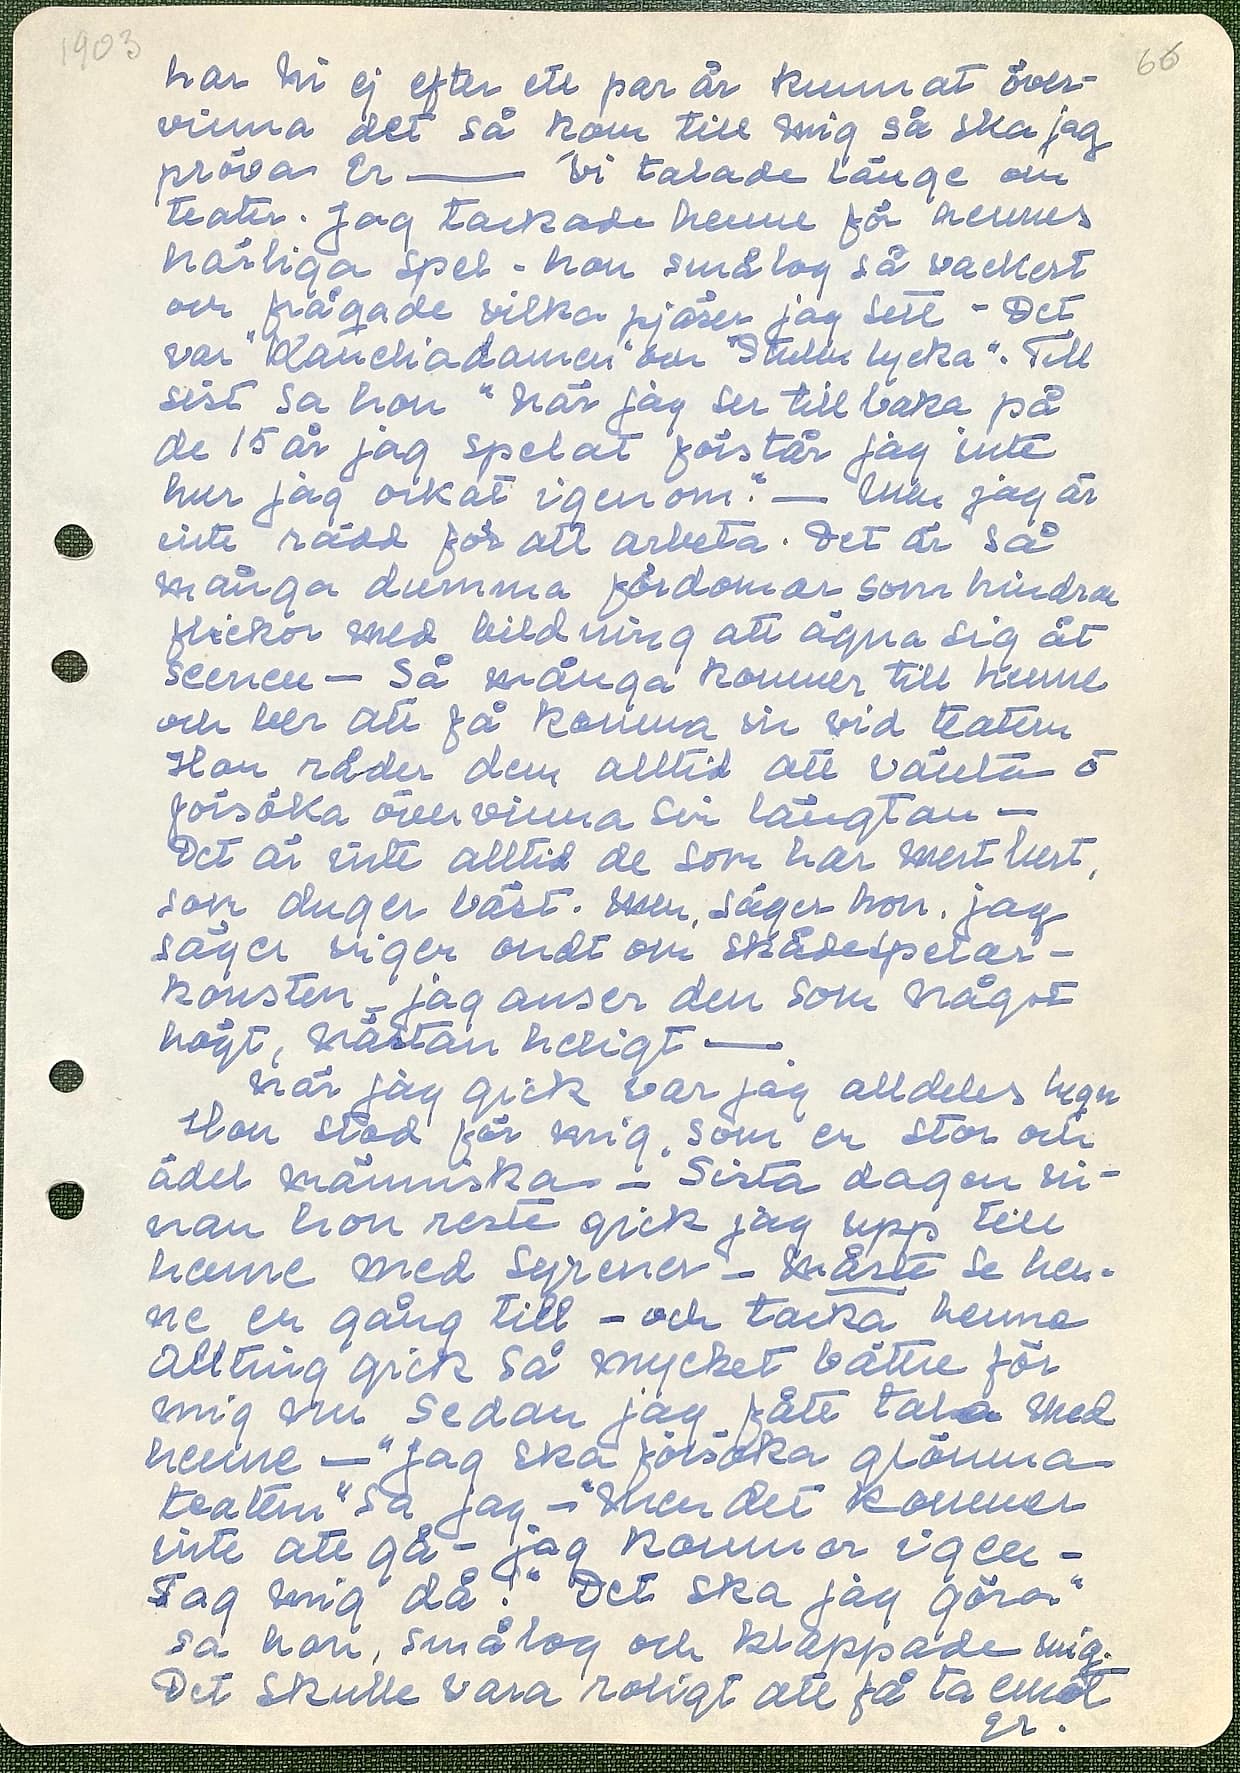 1903
66
har Ni ej efter ett par år kunnat över-
vinna det så kom till mig så ska jag
pröva Er — Vi talade länge om
teater. Jag tackade henne för hennes
härliga spel - hon smålog så vackert
och frågade vilka pjäser jag sett - Det
var "Kameliadamen" och "Stulen lycka". Till
sist sa hon "När jag ser tillbaka på
de 15 år jag spelat förstår jag inte
hur jag orkat igenom." — Men jag är
inte rädd för att arbeta. Det är så
många dumma fördomar som hindrar
flickor med bildning att ägna sig åt
scenen — Så många kommer till henne
och ber att få komma in vid teatern
Hon råder dem alltid att vänta o
försöka övervinna sin längtan —
Det är inte alltid de som har mest lust,
som duger bäst. Men, säger hon, jag
säger inget ondt om skådespelar-
konsten - jag anser den som något
högt, nästan heligt —
När jag gick var jag alldeles lugn
Hon stod för mig, som en stor och
ädel människa - Sista dagen in-
nan hon reste gick jag upp till
henne med syrener - måste se hen-
ne en gång till - och tacka henne
Allting gick så mycket bättre för
mig nu sedan jag fått tala med
henne — "Jag ska försöka glömma
teatern" sa jag - "men det kommer
inte att gå - jag kommer igen -
Tag mig då!" "Det ska jag göra"
sa hon, smålog och klappade mig.
Det skulle vara roligt att få ta emot
Er.